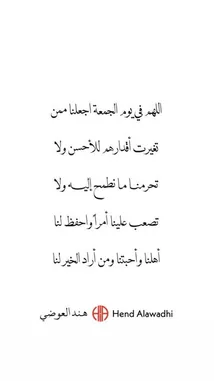 اللهم في يوم الجمعة اجعلنا ممن
تغيرت أقدارهم للأحسن ولا
تحرمنا ما نطمح إليه ولا
تصعب علينا أمراً واحفظ لنا
أهلنا وأحبتنا ومن أراد الخير لنا
هند العوضي Hend Alawadhi